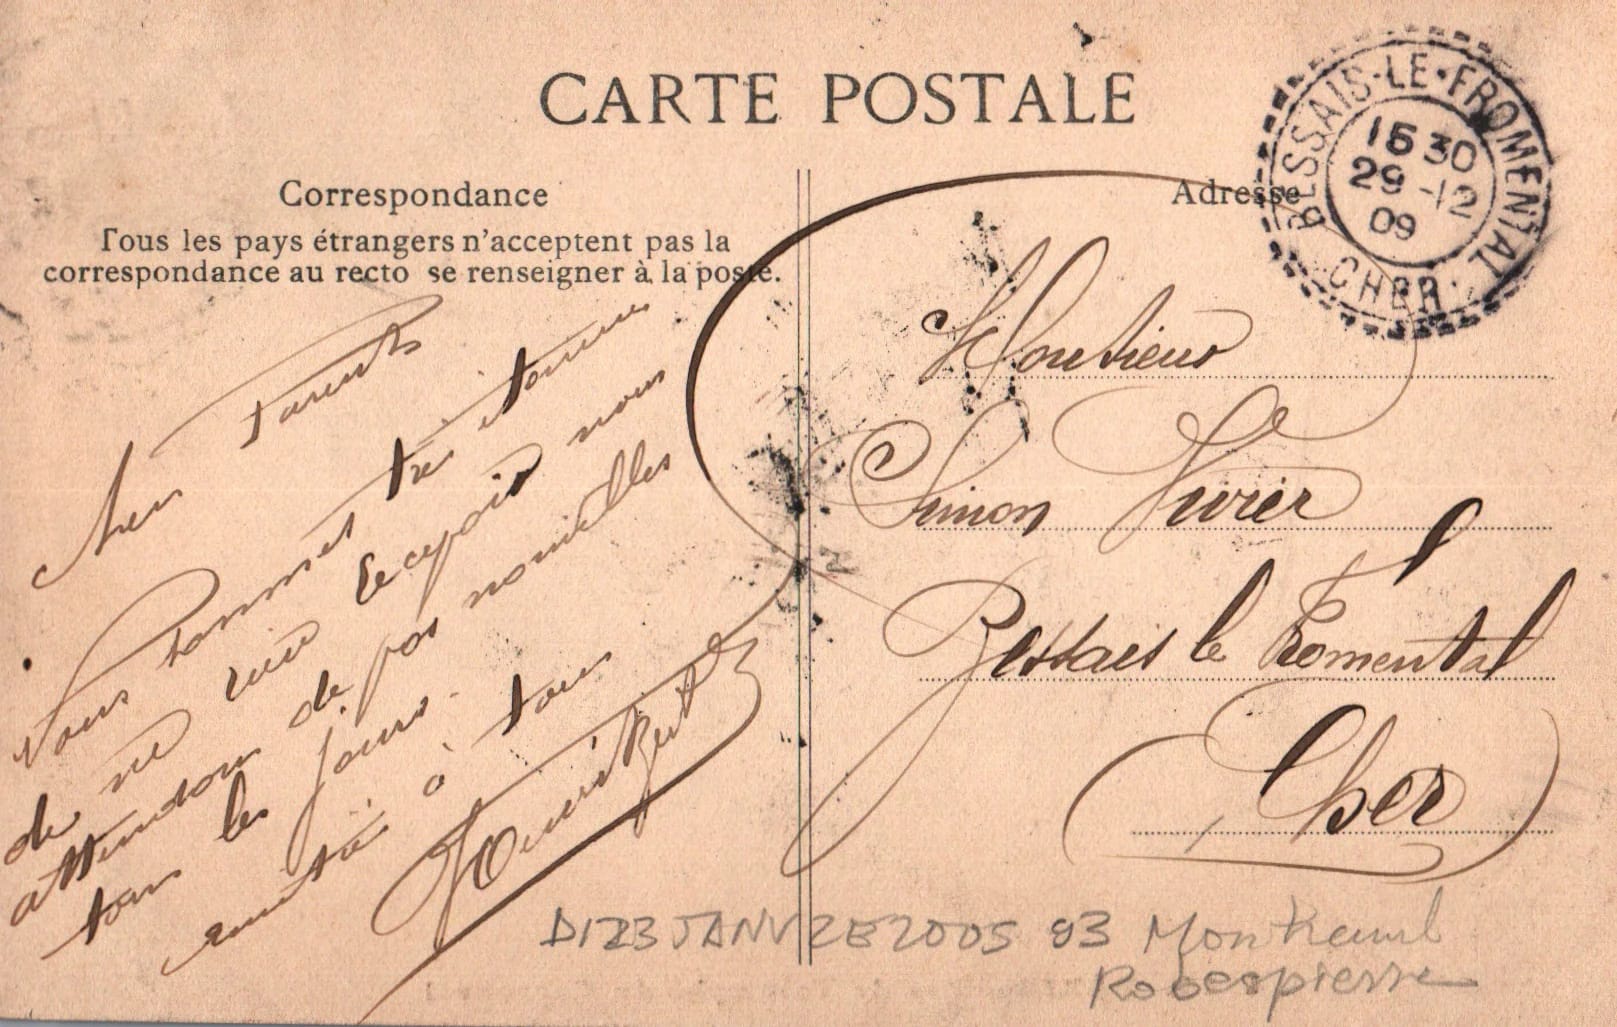 CARTE POSTALE
Correspondance
Tous les pays étrangers n'acceptent pas la
correspondance au recto se renseigner à la poste.
Adresse
BESSAIS-LE-FROMENTAL
15 30
29 -12
09
CHER
Parents
Nous sommes très
de ne rien recevoir nous
attendons de vos nouvelles
tous les jours.
amitié à tous
Monsieur
Simon
Bessais le Fromental
Cher
DI 23 JANV 2005 93 Montreuil
Robespierre